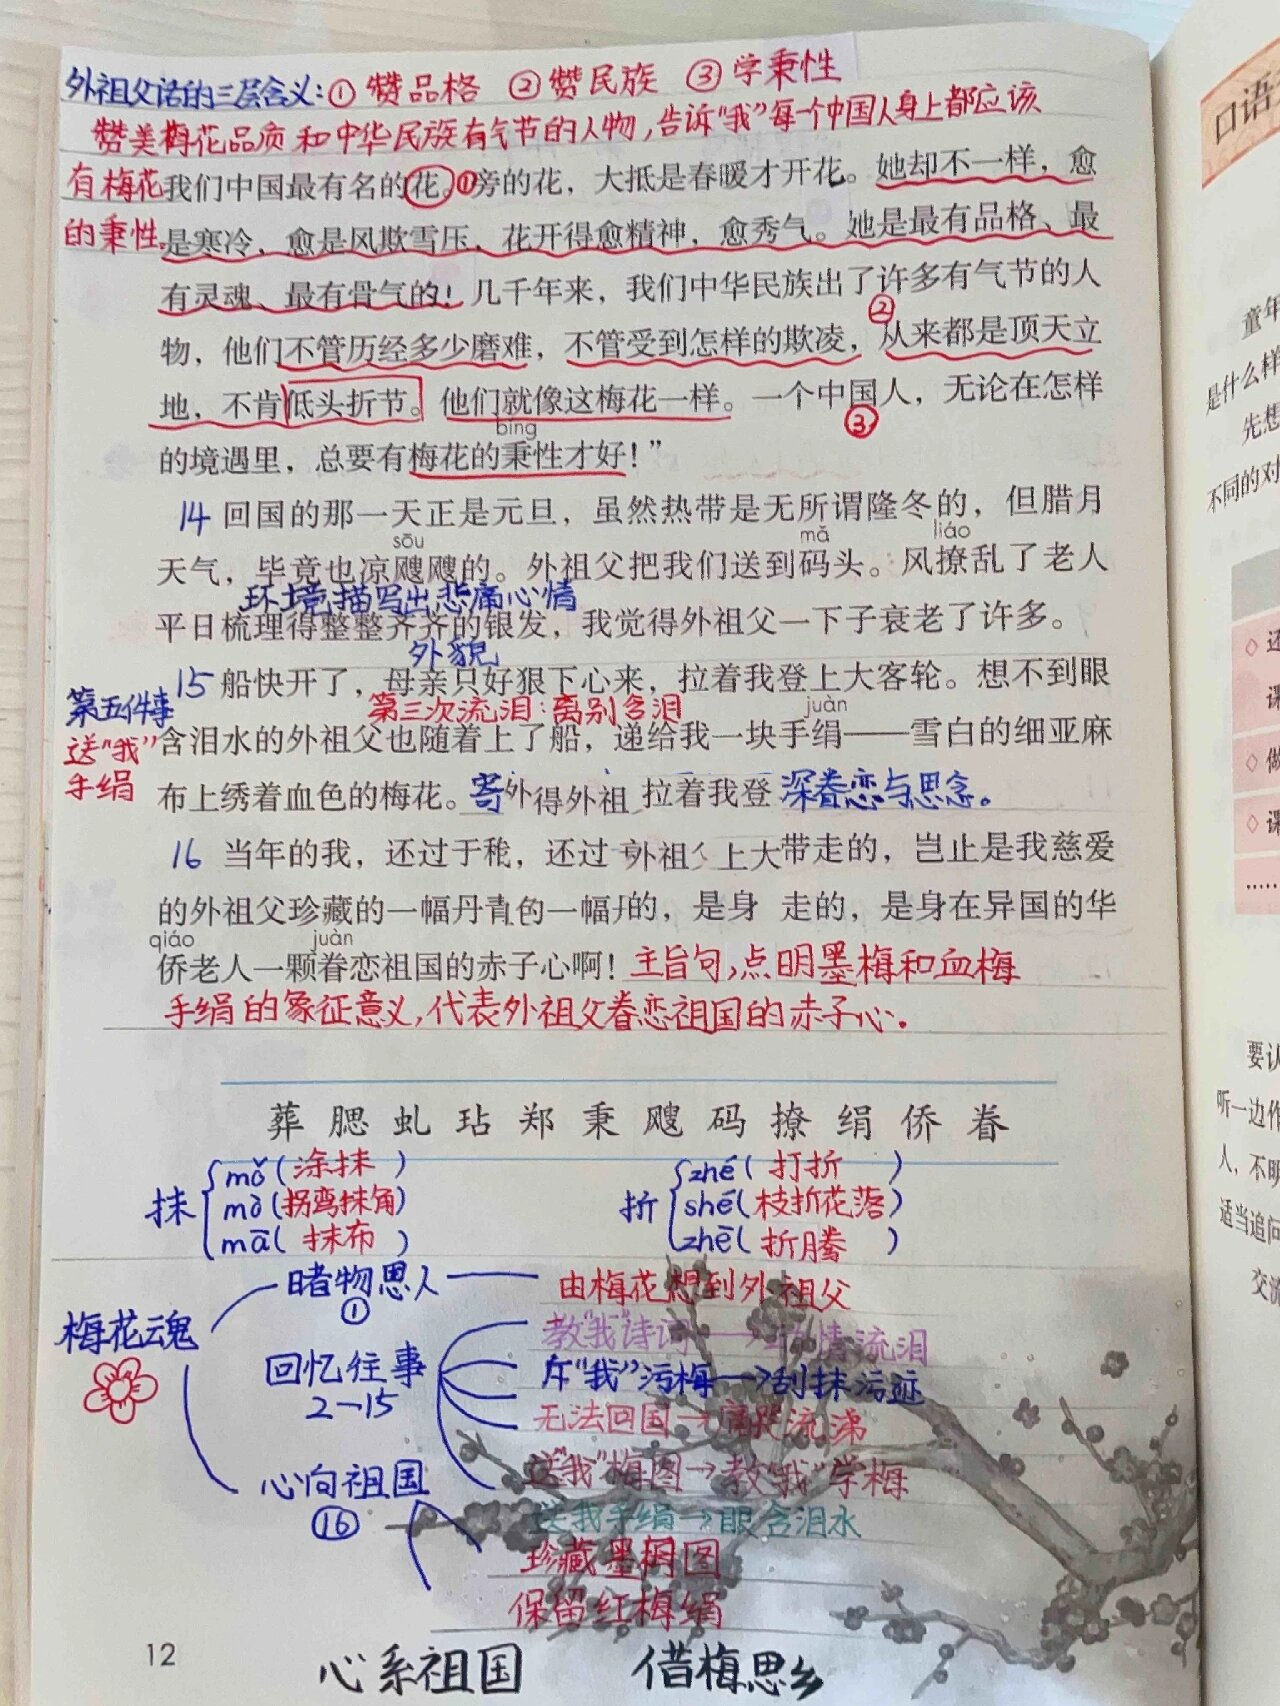 外祖父话的三层含义:①赞品格 ②赞民族 ③学秉性
赞美梅花品质和中华民族有气节的人物,告诉"我"每一个中国人身上都应该
有梅花
的秉性。
我们中国最有名的花。①旁的花，大抵是春暖才开花。她却不一样，愈
是寒冷，愈是风欺雪压，花开得愈精神，愈秀气。她是最有品格、最
有灵魂、最有骨气的！几千年来，我们中华民族出了许多有气节的人
②
物，他们不管历经多少磨难，不管受到怎样的欺凌，从来都是顶天立
地，不肯低头折节。他们就像这梅花一样。一个中国人，无论在怎样
bǐng
③
的境遇里，总要有梅花的秉性才好！”
14 回国的那一天正是元旦，虽然热带是无所谓隆冬的，但腊月
sōu mǎ liáo
天气，毕竟也凉飕飕的。外祖父把我们送到码头。风撩乱了老人
环境描写出悲痛心情
平日梳理得整整齐齐的银发，我觉得外祖父一下子衰老了许多。
外貌
15 船快开了，母亲只好狠下心来，拉着我登上大客轮。想不到眼
第五件事
送"我"
手绢
第三次流泪:离别含泪
juàn
含泪水的外祖父也随着上了船，递给我一块手绢——雪白的细亚麻
布上绣着血色的梅花。寄外得外祖 拉着我登 深眷恋与思念。
16 当年的我，还过于 还过 外祖 上大带走的，岂止是我慈爱
的外祖父珍藏的一幅丹青 一幅 的，是身 走的，是身在异国的华
qiáo juàn
侨老人一颗眷恋祖国的赤子心啊！主旨句,点明墨梅和血梅
手绢的象征意义,代表外祖父眷恋祖国的赤子心.
葬 腮 虬 玷 郑 秉 飕 码 撩 绢 侨 眷
抹
mǒ(涂抹)
mò(拐弯抹角)
mā(抹布)
折
zhé(打折)
shé(枝折花落)
zhē(折腾)
梅花魂
睹物思人
①
由梅花想到外祖父
回忆往事
2—15
教"我"诗词→动情流泪
斥"我"污梅→刮抹污迹
无法回国→痛哭流涕
送"我"梅图→教"我"学梅
送我手绢→眼含泪水
心向祖国
⑯
珍藏墨梅图
保留红梅绢
12
心系祖国 借梅思乡
口语
童年
是什么样
先想
不同的对
◇ 还
课
◇ 做
◇ 课
……
要认
听一边作
人，不明
适当追问
交流